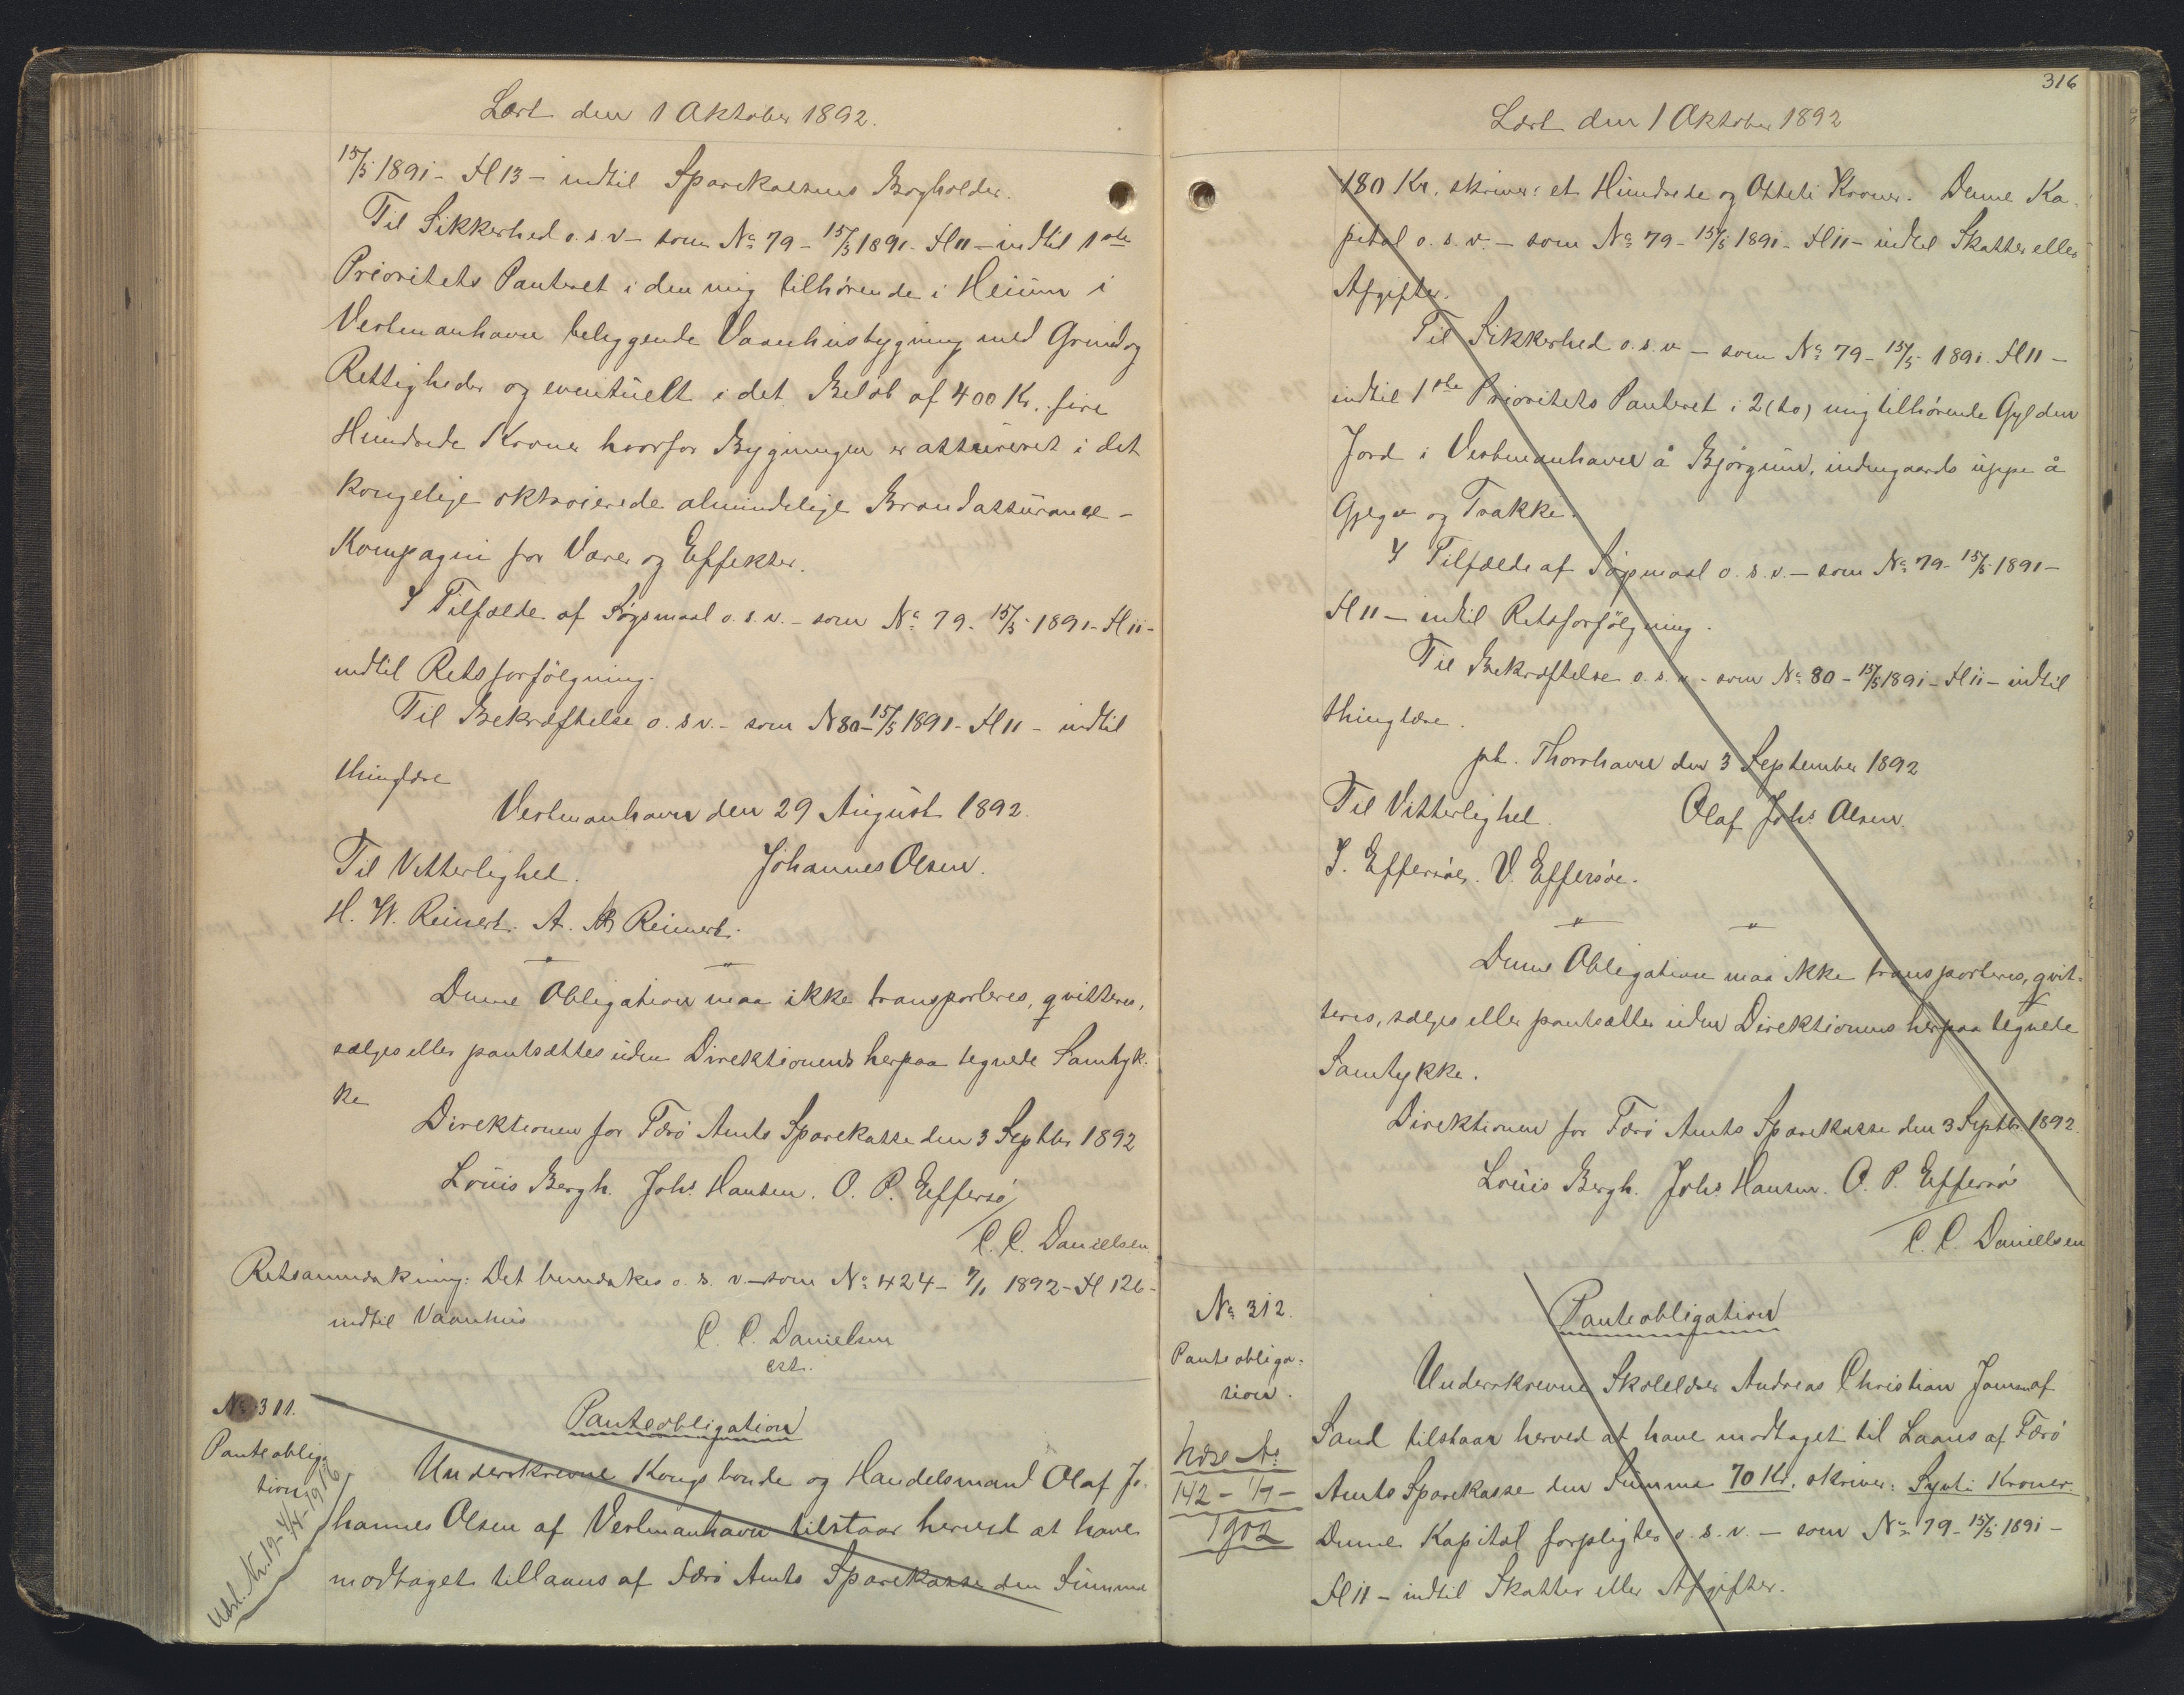 Læst den 1 Oktober 1892.
15/5 1891 - Fl 13 - indtil Sparekassens Bogholder.
Til Sikkerhed o. s. v - som No 79 - 15/5 1891 - Fl 11 - indtil 1ste
Prioritets Panteret i den mig tilhørende i Heiúm i
Vestmanhavn beliggende Vaanhusbygning med Grund og
Rettigheder og eventuelt i det Beløb af 400 Kr. fire
Hundrede Kroner hvorfor Bygningen er assureret i det
Kongelige oktroierede almindelige Brandassurance-
Kompagni for Varer og Effekter.
I Tilfælde af Søgsmaal o. s. v. - som No 79. 15/5 1891 - Fl 11 -
indtil Retsforfölgning.
Til Bekræftelse o. s v. - som N 80 - 15/5 1891 - Fl 11 - indtil
thinglæse
Vestmanhavn den 29 August 1892.
Til Vitterlighed. Johannes Olsen.
H. W. Reinert. A. M Reinert.
Denne Obligation maa ikke transporteres, qvitteres,
sælges eller pantsættes uden Direktionens herpaa tegnede Samtyk-
ke
Direktionen for Færö Amts Sparekasse den 3 Septbr 1892
Louis Bergh. Johs Hansen. O. P. Effersø
C. C. Danielsen
Retsanmærkning: Det bemærkes o. s. v - som No 424 - 7/1 1892 - Fl 126 -
indtil Vaanhus
C. C. Danielsen
cst.
No 311.
Panteobliga-
tion
Udsl. Nr. 19 - 4/4 - 1916
Panteobligation
Underskrevne Kongsbonde og Handelsmand Olaf Jo-
hannes Olsen af Vestmanhavn tilstaar herved at have
modtaget tillaans af Færö Amts Sparekasse den Summa
316
Læst den 1 Oktober 1892
180 Kr. skriver: et Hundrede og Otteti Kroner. Denne Ka-
pital o. s. v. - som No 79 - 15/5 1891 - Fl 11 - indtil Skatter eller
Afgifter.
Til Sikkerhed o. s. v - som No 79 - 15/5 1891. Fl 11 -
indtil 1ste Prioritets Panteret i 2 (to) mig tilhørende Gylden
Jord i Vestmanhavn å Bjørgum, indengaards uppe å
Gjegv og Trakki.
I Tilfælde af Søgsmaal o. s. v. - som No 79 - 15/5 1891 -
Fl 11 - indtil Retsforfölgning.
Til Bekræftelse o. s. v. - som No 80 - 15/5 1891 - Fl 11 - indtil
thinglæse.
pt. Thorshavn den 3 September 1892
Til Vitterlighed. Olaf Johs Olsen.
J. Effersøe. V. Effersöe.
Denne Obligation maa ikke transporteres, qvit-
teres, sælges eller pantsættes uden Direktionens herpaa tegnede
Samtykke.
Direktionen for Færö Amts Sparekasse den 3 Septbr 1892.
Louis Bergh. Johs Hansen. O. P. Effersö
C. C. Danielsen
No 312.
Panteobliga-
tion.
Panteobligation
Underskrevne Skolelærer Andreas Christian Jansen af
Sand tilstaar herved at have modtaget til Laans af Færö
Amts Sparekasse den Summa 70 Kr. skriver: Syvti Kroner.
Denne Kapital forpligter o. s. v. - som No 79 - 15/5 1891 -
Fl 11 - indtil Skatter eller Afgifter.
142 -
1902